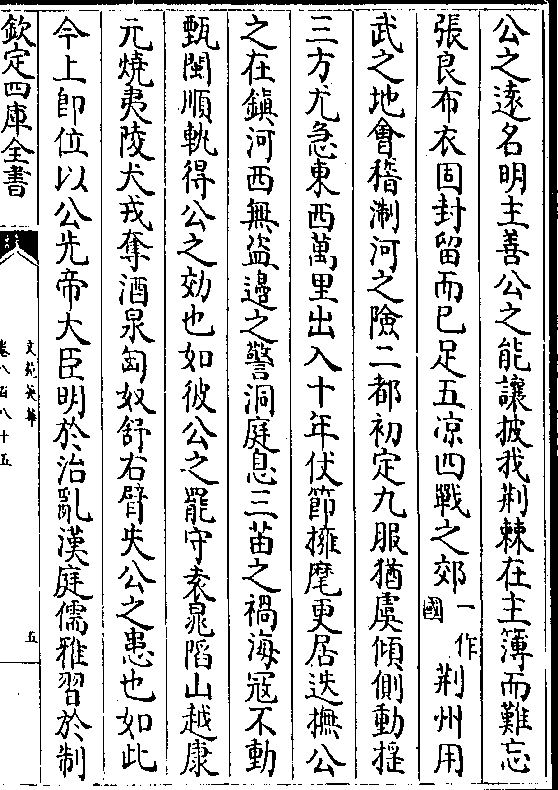 公之逺名明主善公之能讓披我荆棘在主簿而難忘
張良布衣固封留而已足五凉四戰之郊一作國荆州用
武之地會稽淛河之險二都初定九服猶虞傾側動揺
三方尤急東西萬里出入十年伏節擁麾更居迭撫公
之在鎮河西無盜邉之警洞庭息三苗之禍海冦不動
甄閩順軌得公之効也如彼公之罷守袁晁陷山越康
元燒夷陵犬戎奪酒泉匈奴舒右臂失公之患也如此
今上卽位以公先帝大臣明於治亂漢庭儒雅習於制
欽定四庫全書
文苑英華
卷八百八十五
五